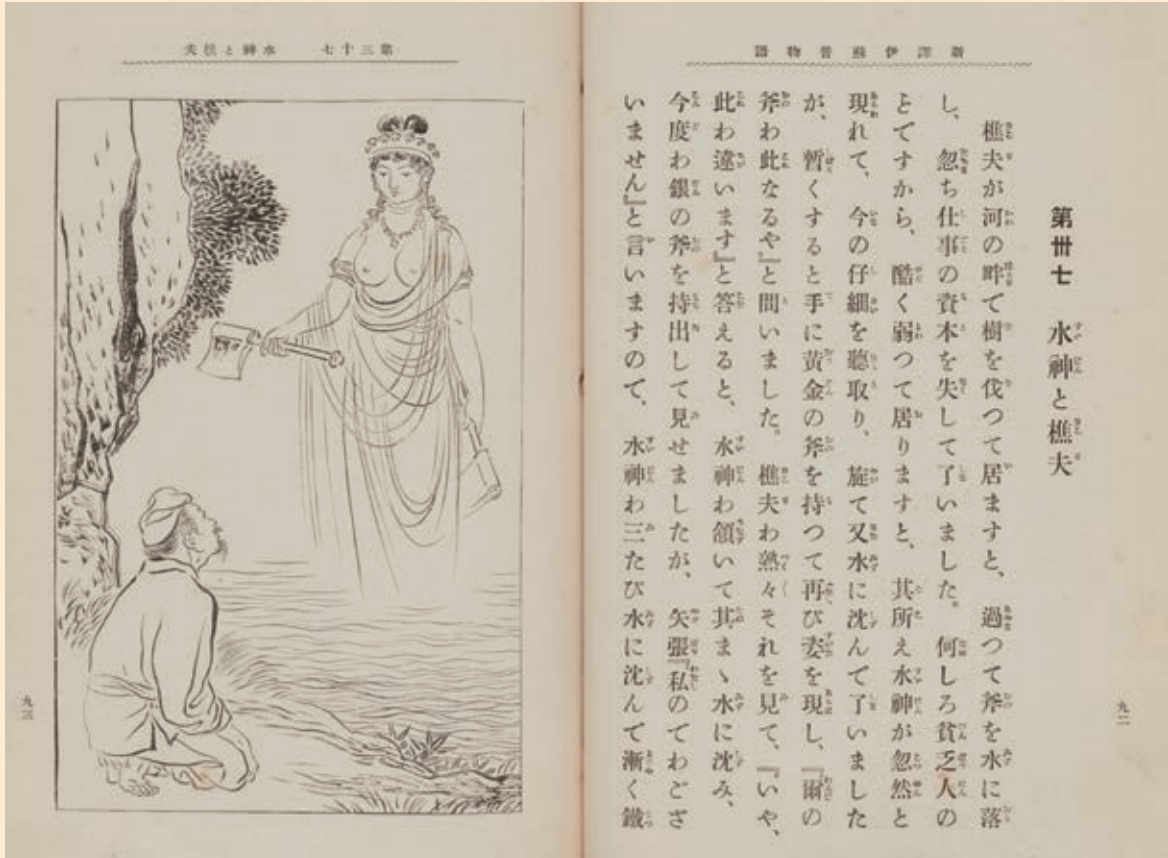 新譯伊蘇普物語
第卅七 水神と樵夫
樵夫が河の畔で樹を伐つて居ますと、過つて斧を水に落
し、忽ち仕事の資本を失して了いました。何しろ貧乏人の
とですから、酷く弱つて居りますと、其所え水神が忽然と
現れて、今の仔細を聽取り、旋て又水に沈んで了いました
が、暫くすると手に黃金の斧を持つて再び姿を現し、『爾の
斧わ此なるや』と問いました。樵夫わ熟々それを見て、『いや、
此わ違います』と答えると、水神わ頷いて其まゝ水に沈み、
今度わ銀の斧を持出して見せましたが、矢張『私のでわござ
いません』と言いますので、水神わ三たび水に沈んで漸く鐵
九二
第三十七 水神と樵夫
九三